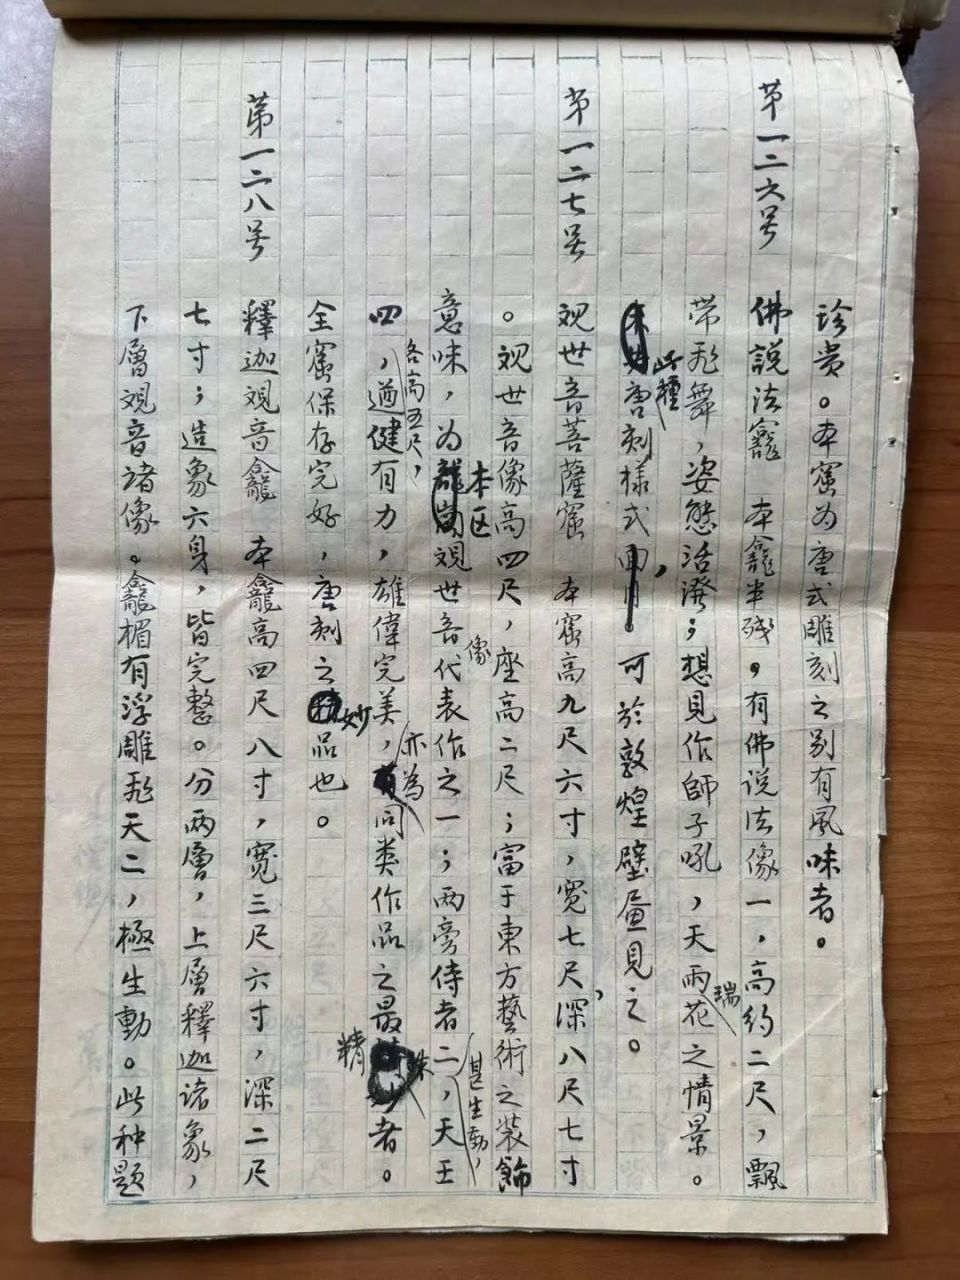 珍贵。本窟为唐式雕刻之别有風味者。
第一二六号 佛說法龕 本龕半殘，有佛说法像一，高约二尺，飄
带飛舞，姿態活潑；想見作師子吼，天雨瑞花之情景。
此種唐刻樣式，可於敦煌壁畫見之。
第一二七号 观世音菩薩窟 本窟高九尺六寸，宽七尺，深八尺七寸
。观世音像高四尺，座高二尺；富于東方藝術之装飾
意味，为本区观世音像代表作之一；两旁侍者二，甚生動，天王
四，各高五尺，遒健有力，雄偉完美，亦為同类作品之最精者。
全窟保存完好，唐刻之妙品也。
第一二八号 釋迦观音龕 本龕高四尺八寸，宽三尺六寸，深二尺
七寸；造象六身，皆完整。分两層，上層釋迦诸象，
下層观音諸像。龕楣有浮雕飛天二，極生動。此种题